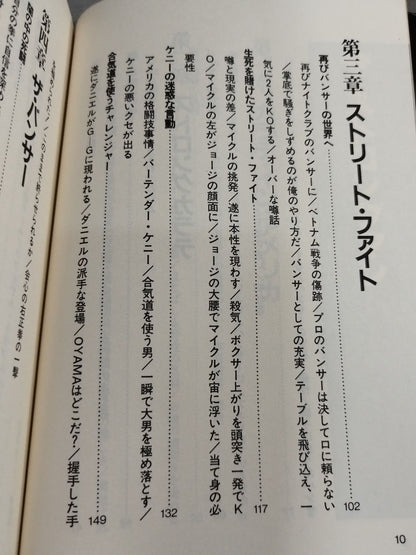 第三章 ストリート・ファイト
再びバンサーの世界へ
再びナイトクラブのバンサーに／ベトナム戦争の傷跡／プロのバンサーは決して口に頼らない
／掌底で騒ぎをしずめるのが俺のやり方だ／バンサーとしての充実／テーブルを飛び込え、一
気に2人をKOする／オーバーな噂話 102
生死を賭けたストリート・ファイト
噂と現実の差／マイクルの挑発／遂に本性を現わす／殺気／ボクサー上がりを頭突き一発でK
O／マイクルの左がジョージの顔面に／ジョージの大腰でマイクルが宙に浮いた／当て身の必
要性 117
ケニーの迷惑な言動
アメリカの格闘技事情／バーテンダー・ケニー／合気道を使う男／一瞬で大男を極め落とす／
ケニーの悪いクセが出る 132
合気道を使うチャレンジャー
遂にダニエルがG—Gに現われる／ダニエルの派手な登場／OYAMAはどこだ？／握手した手
149
第四章 ザ・バンサー
会心の右正拳の一撃
10